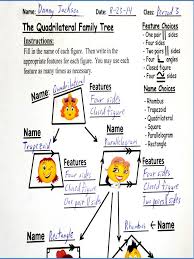 Name: Danny Jackson Date: 8-25-14 Class: Period 3
The Quadrilateral Family Tree
Instructions:
Fill in the name of each figure. Then write in the
appropriate features for each figure. You may use
feature as many times as necessary.
Feature Choices
- One pair // sides
- Two pairs // sides
- Four sides
- Four angles
- Closed figure
- Four
Name Choices
- Rhombus
- Trapezoid
- Quadrilateral
- Parallelogram
- Rectangle
- Square
Quadrilateral
Name
Features
Four sides
Closed figure
Name
Trapezoid
Features
Four sides
Closed figure
One pair // sides
Name
Parallelogram
Features
Four sides
Closed figure
Two pair // sides
Name
Rectangle
Rhombus
Name